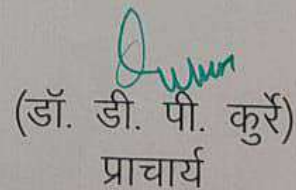 (डॉ. डी. पी. कुर्रे)
प्राचार्य